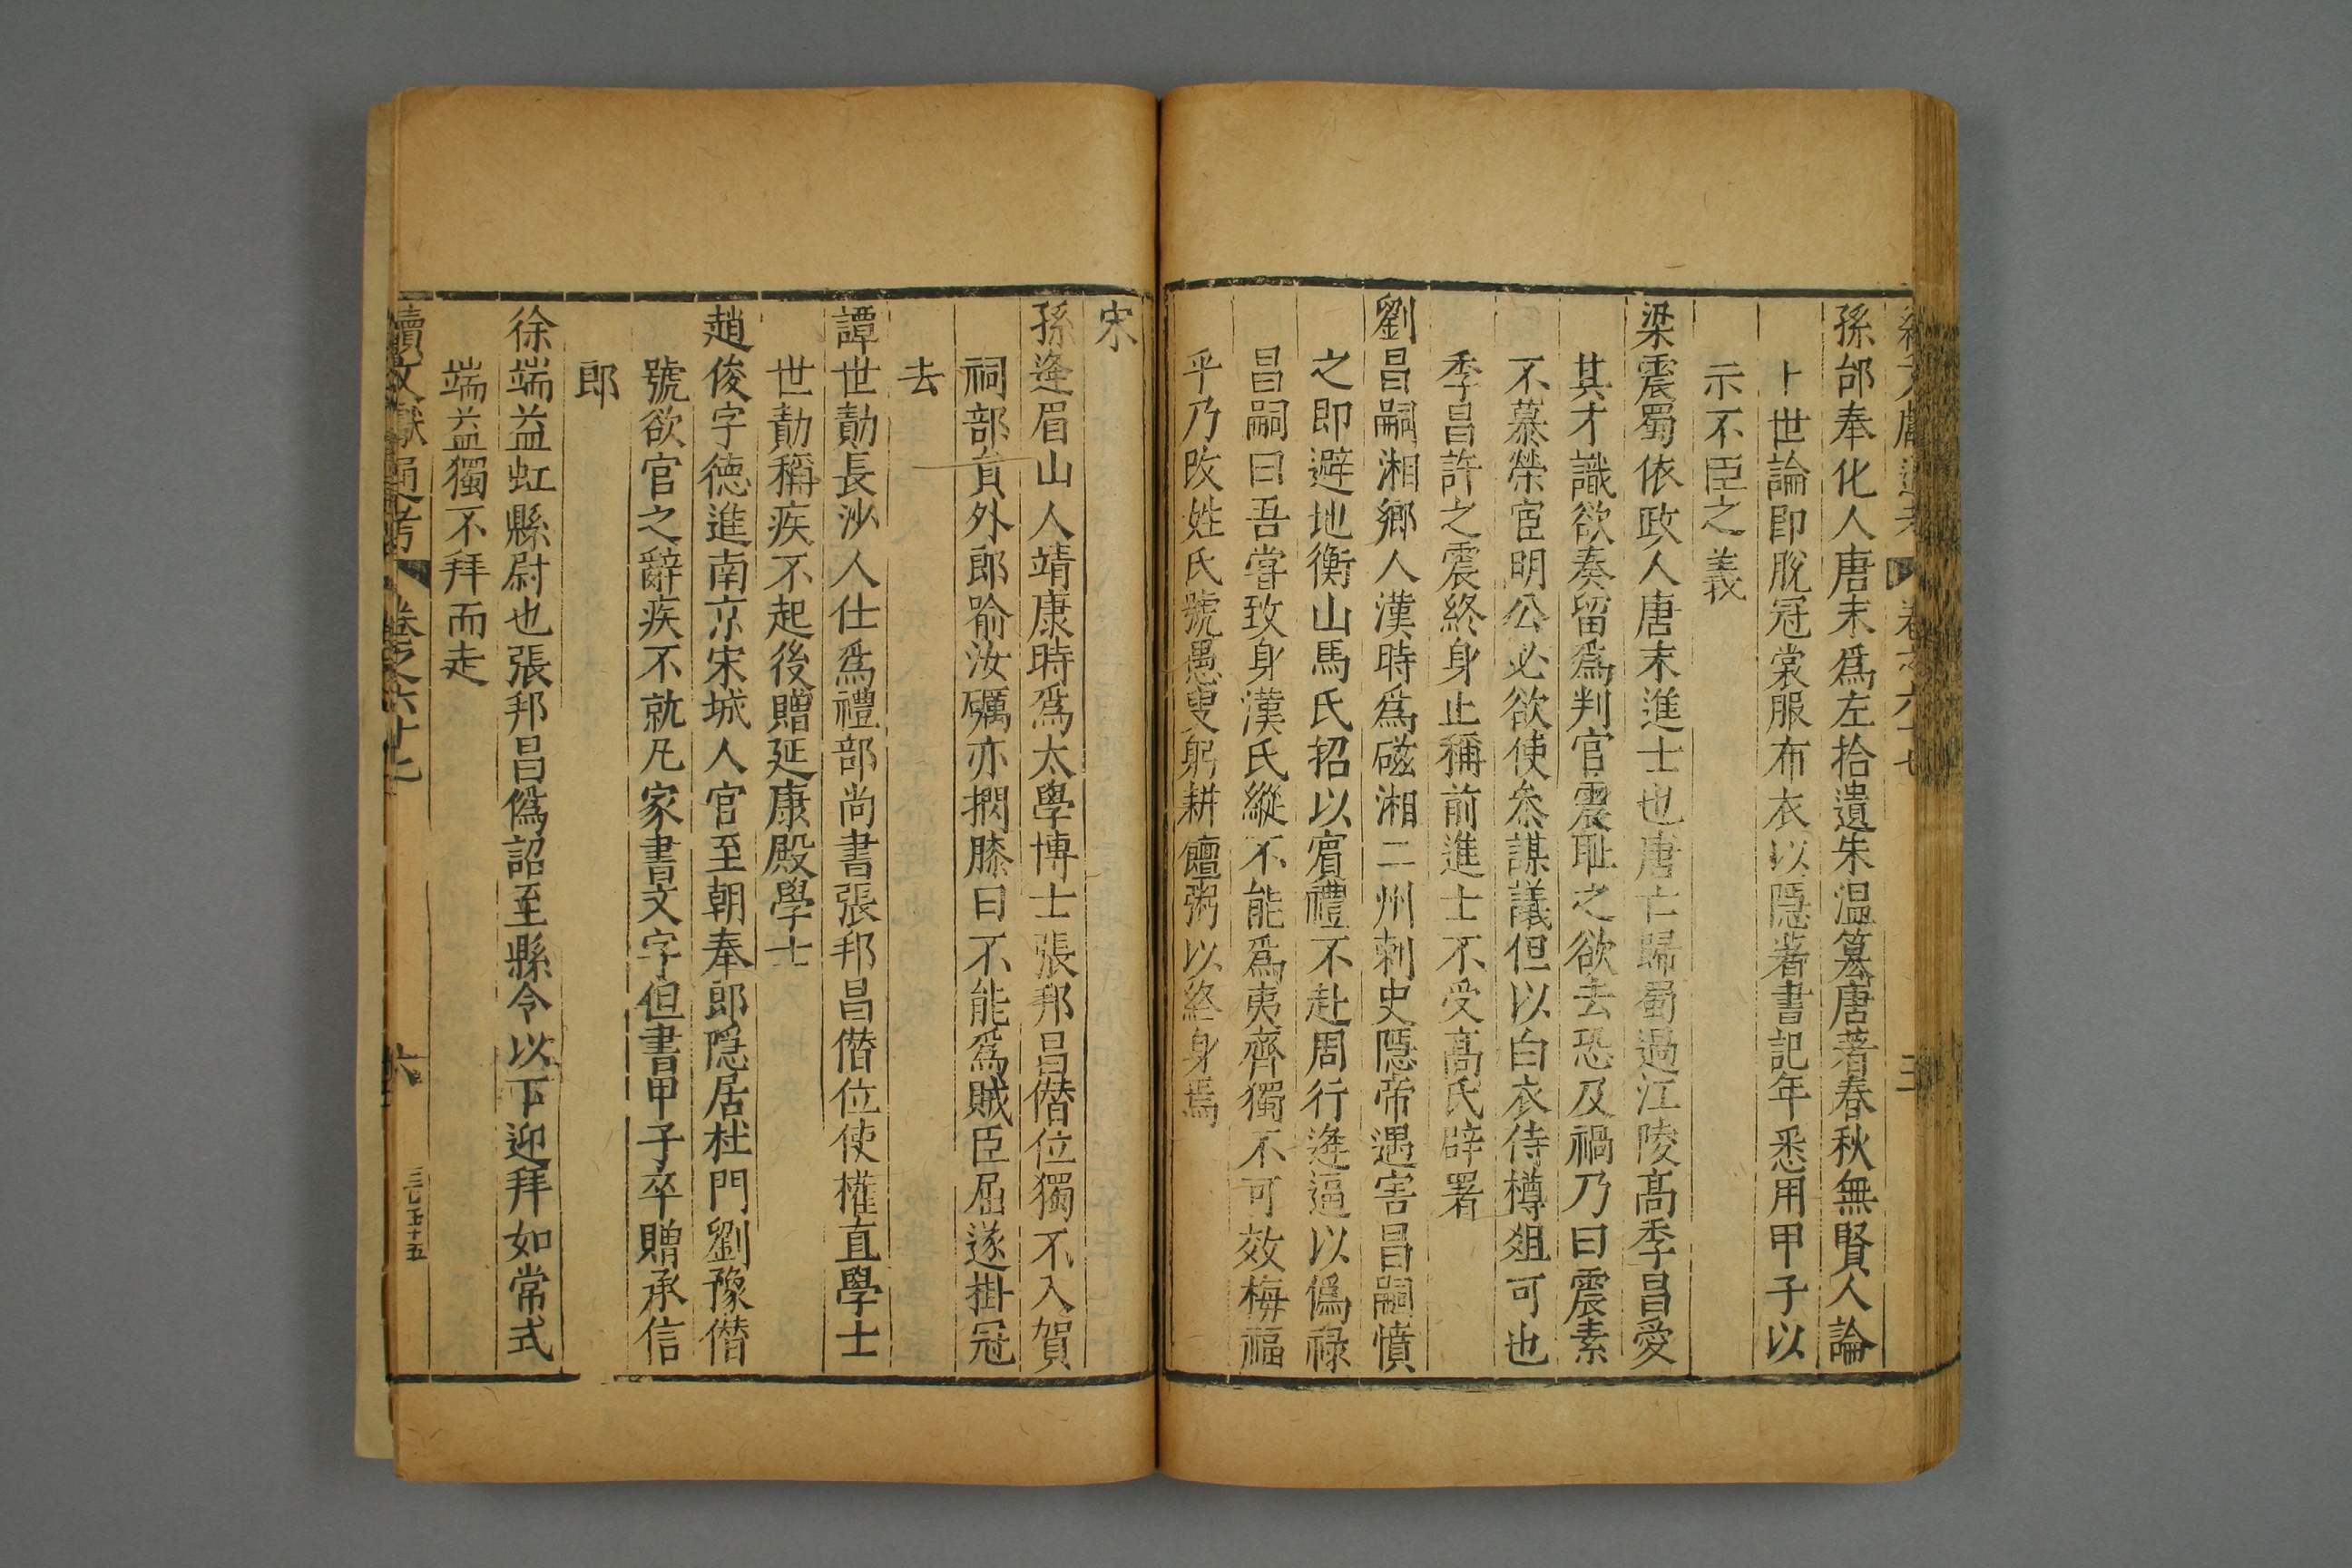 孫郃奉化人唐末爲左拾遺朱温簒唐著春秋無賢人論
卜世論即脫冠裳服布衣以隱著書記年悉用甲子以
示不臣之義
梁震蜀依政人唐末進士也唐亡歸蜀過江陵髙季昌愛
其才識欲奏留爲判官震耻之欲去恐及禍乃曰震素
不慕榮宦明公必欲使叅謀議但以白衣侍樽俎可也
季昌許之震終身止稱前進士不受髙氏辟署
劉昌嗣湘鄉人漢時爲磁湘二州刺史隱帝遇害昌嗣憤
之即避地衡山馬氏招以賔禮不赴周行逄逼以僞祿
昌嗣曰吾嘗致身漢氏縱不能爲夷齊獨不可效梅福
乎乃改姓氏號愚叟躬耕饘粥以終身焉
宋
孫逄眉山人靖康時爲太學博士張邦昌僣位獨不入賀
祠部負外郎喻汝礪亦捫膝曰不能爲賊臣屈遂掛冠
去
譚世勣長沙人仕爲禮部尚書張邦昌僣位使權直學士
世勣稱疾不起後贈延康殿學士
趙俊字德進南京宋城人官至朝奉郎隱居杜門劉豫僣
號欲官之辭疾不就凡家書文字但書甲子卒贈承信
郎
徐端益虹縣尉也張邦昌僞詔至縣令以下迎拜如常式
端益獨不拜而走
續文獻通考 卷之六十七